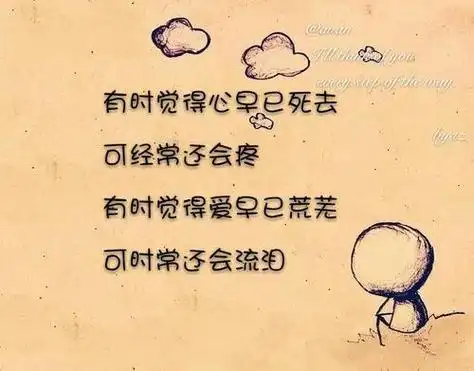 I'll think of you
every step of the way.
有时觉得心早已死去
可经常还会疼
有时觉得爱早已荒芜
可时常还会流泪